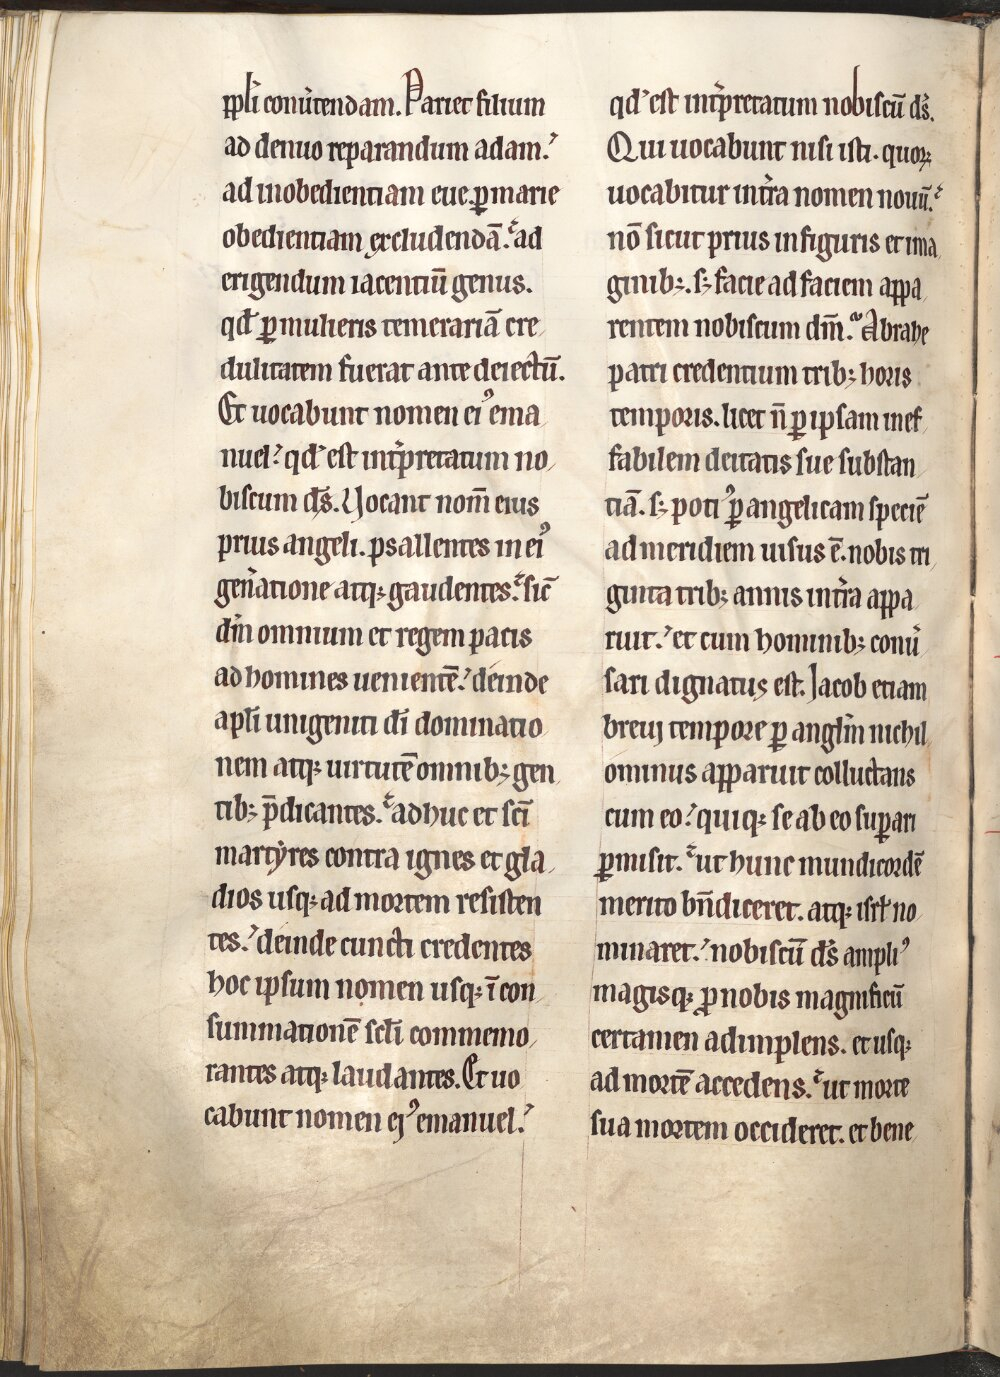 ppli conu̾tendam. Pariet filium
ad denuo reparandum adam.
ad inobedientiam eue. ꝑ marie
obedientiam excludendā. ad
erigendum iacentiū genus.
qđ ꝑ mulieris temerariā cre
dulitatem fuerat ante deiectū.
Et uocabunt nomen eiꝰ ema
nuel. qđ est int̾pretatum no
biscum ds̄. Vocant nom̄ eius
prius angeli. psallentes in eiꝰ
gen̄atione atq; gaudentes. sic̄
dm̄ omnium et regem pacis
ad homines uenientē. deinde
apl̄i unigeniti dī dominatio
nem atq; uirtutē omnib; gen
tib; p̄dicantes. adhuc et scī
martyres contra ignes et gla
dios usq; ad mortem resisten
tes. deinde cuncti credentes
hoc ipsum nomen usq; ī con
summationē scl̄i commemo
rantes atq; laudantes. Et uo
cabunt nomen ejꝰ emanuel.
qđ est int̾pretatum nobiscū ds̄.
Qui uocabunt nisi isti. quoꝝ
uocabitur int̾ra nomen nouū.
nō sicut prius in figuris et ima
ginib;. s; facie ad faciem appa
rentem nobiscum dm̄. Abrahe
patri credentium trib; horis
temporis. licet n̄ ꝑ ipsam inef
fabilem deitatis sue substan
tiā. s; potiꝰ ꝑ angelicam speciē
ad meridiem uisus ē. nobis tri
ginta trib; annis int̾ra appa
ruit. et cum hominib; conu̾
sari dignatus est. Jacob etiam
breuj tempore ꝑ angl̄m nichil
ominus apparuit colluctans
cum eo. quiq; se ab eo suꝑari
ꝑmisit. ut hunc mundicordē
merito bn̄diceret. atq; isrl̄ no
minaret. nobiscū ds̄ ampliꝰ
magisq; ꝓ nobis magnificū
certamen adimplens. et usq;
ad mortē accedens. ut morte
sua mortem occideret. et bene